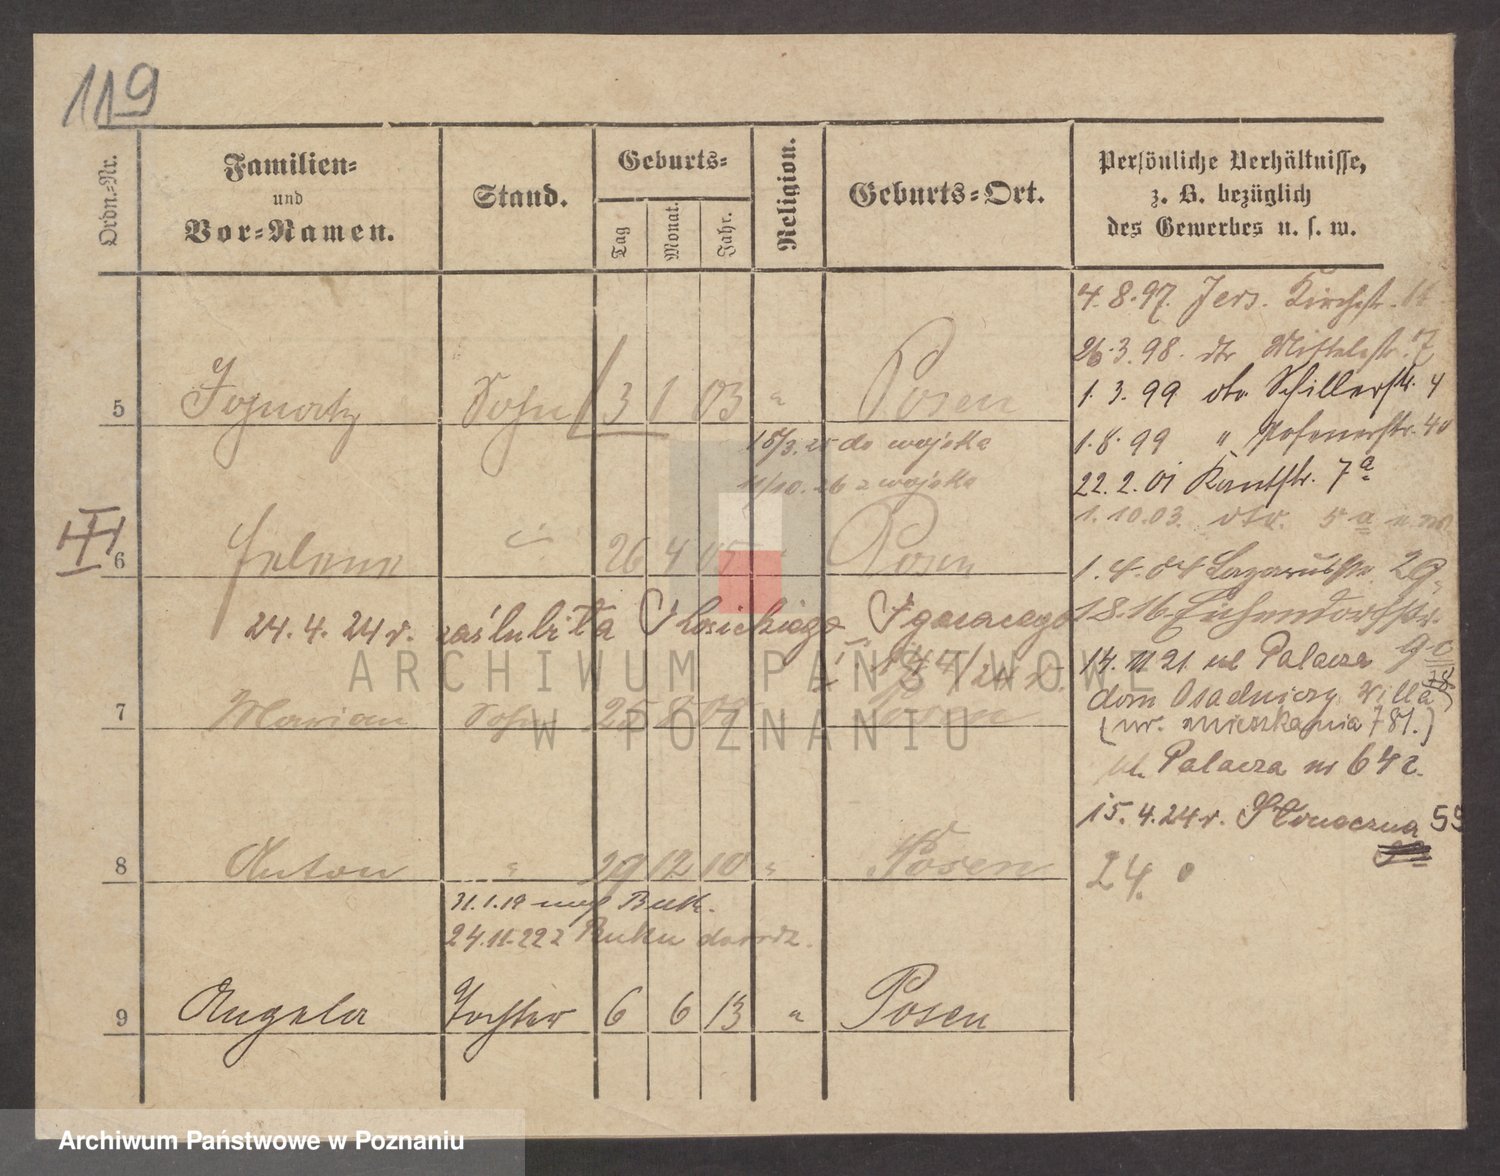 119
Ordn.-Nr.
Familien-
und
Vor-Namen.
Stand.
Geburts-
Tag
Monat.
Jahr.
Religion.
Geburts-Ort.
Persönliche Verhältnisse,
z. B. bezüglich
des Gewerbes u. s. w.
4.8.97. Jers. Kirchstr.
26.3.98. Mittelstr. 7
5 Ignatz Sohn 3 1 03 " Posen
1.3.99 Schillerstr. 4
1.8.99 " Posenerstr. 40
15/3.25 do wojska
22.2.01 Kantstr. 7a
11/10.26 z wojska
1.10.03. 5a
III
6 Helene 26 4 05 " Posen
1.4.04 Lazarusstr. 29.
24.4.24 r. zaślubiła Ignacego
1.8.16. Eichendorffstr.
14.11 21. ul Palacza
7 Marian Sohn 25 Posen
dom Osadniczy Villa
(nr. mieszkania 781.)
ul. Palacza nr 64
15.4.24 r. Słoneczna
8 Anton " 29 12 10 " Posen
24.
31.1.19 Buk.
24.11.22 z Buku
9 Angela Tochter 6 6 13 " Posen
ARCHIWUM PAŃSTWOWE
W POZNANIU
Archiwum Państwowe w Poznaniu